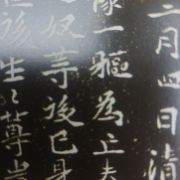 二月四日清
像一軀為亡夫
奴等後已身
後生〻尊